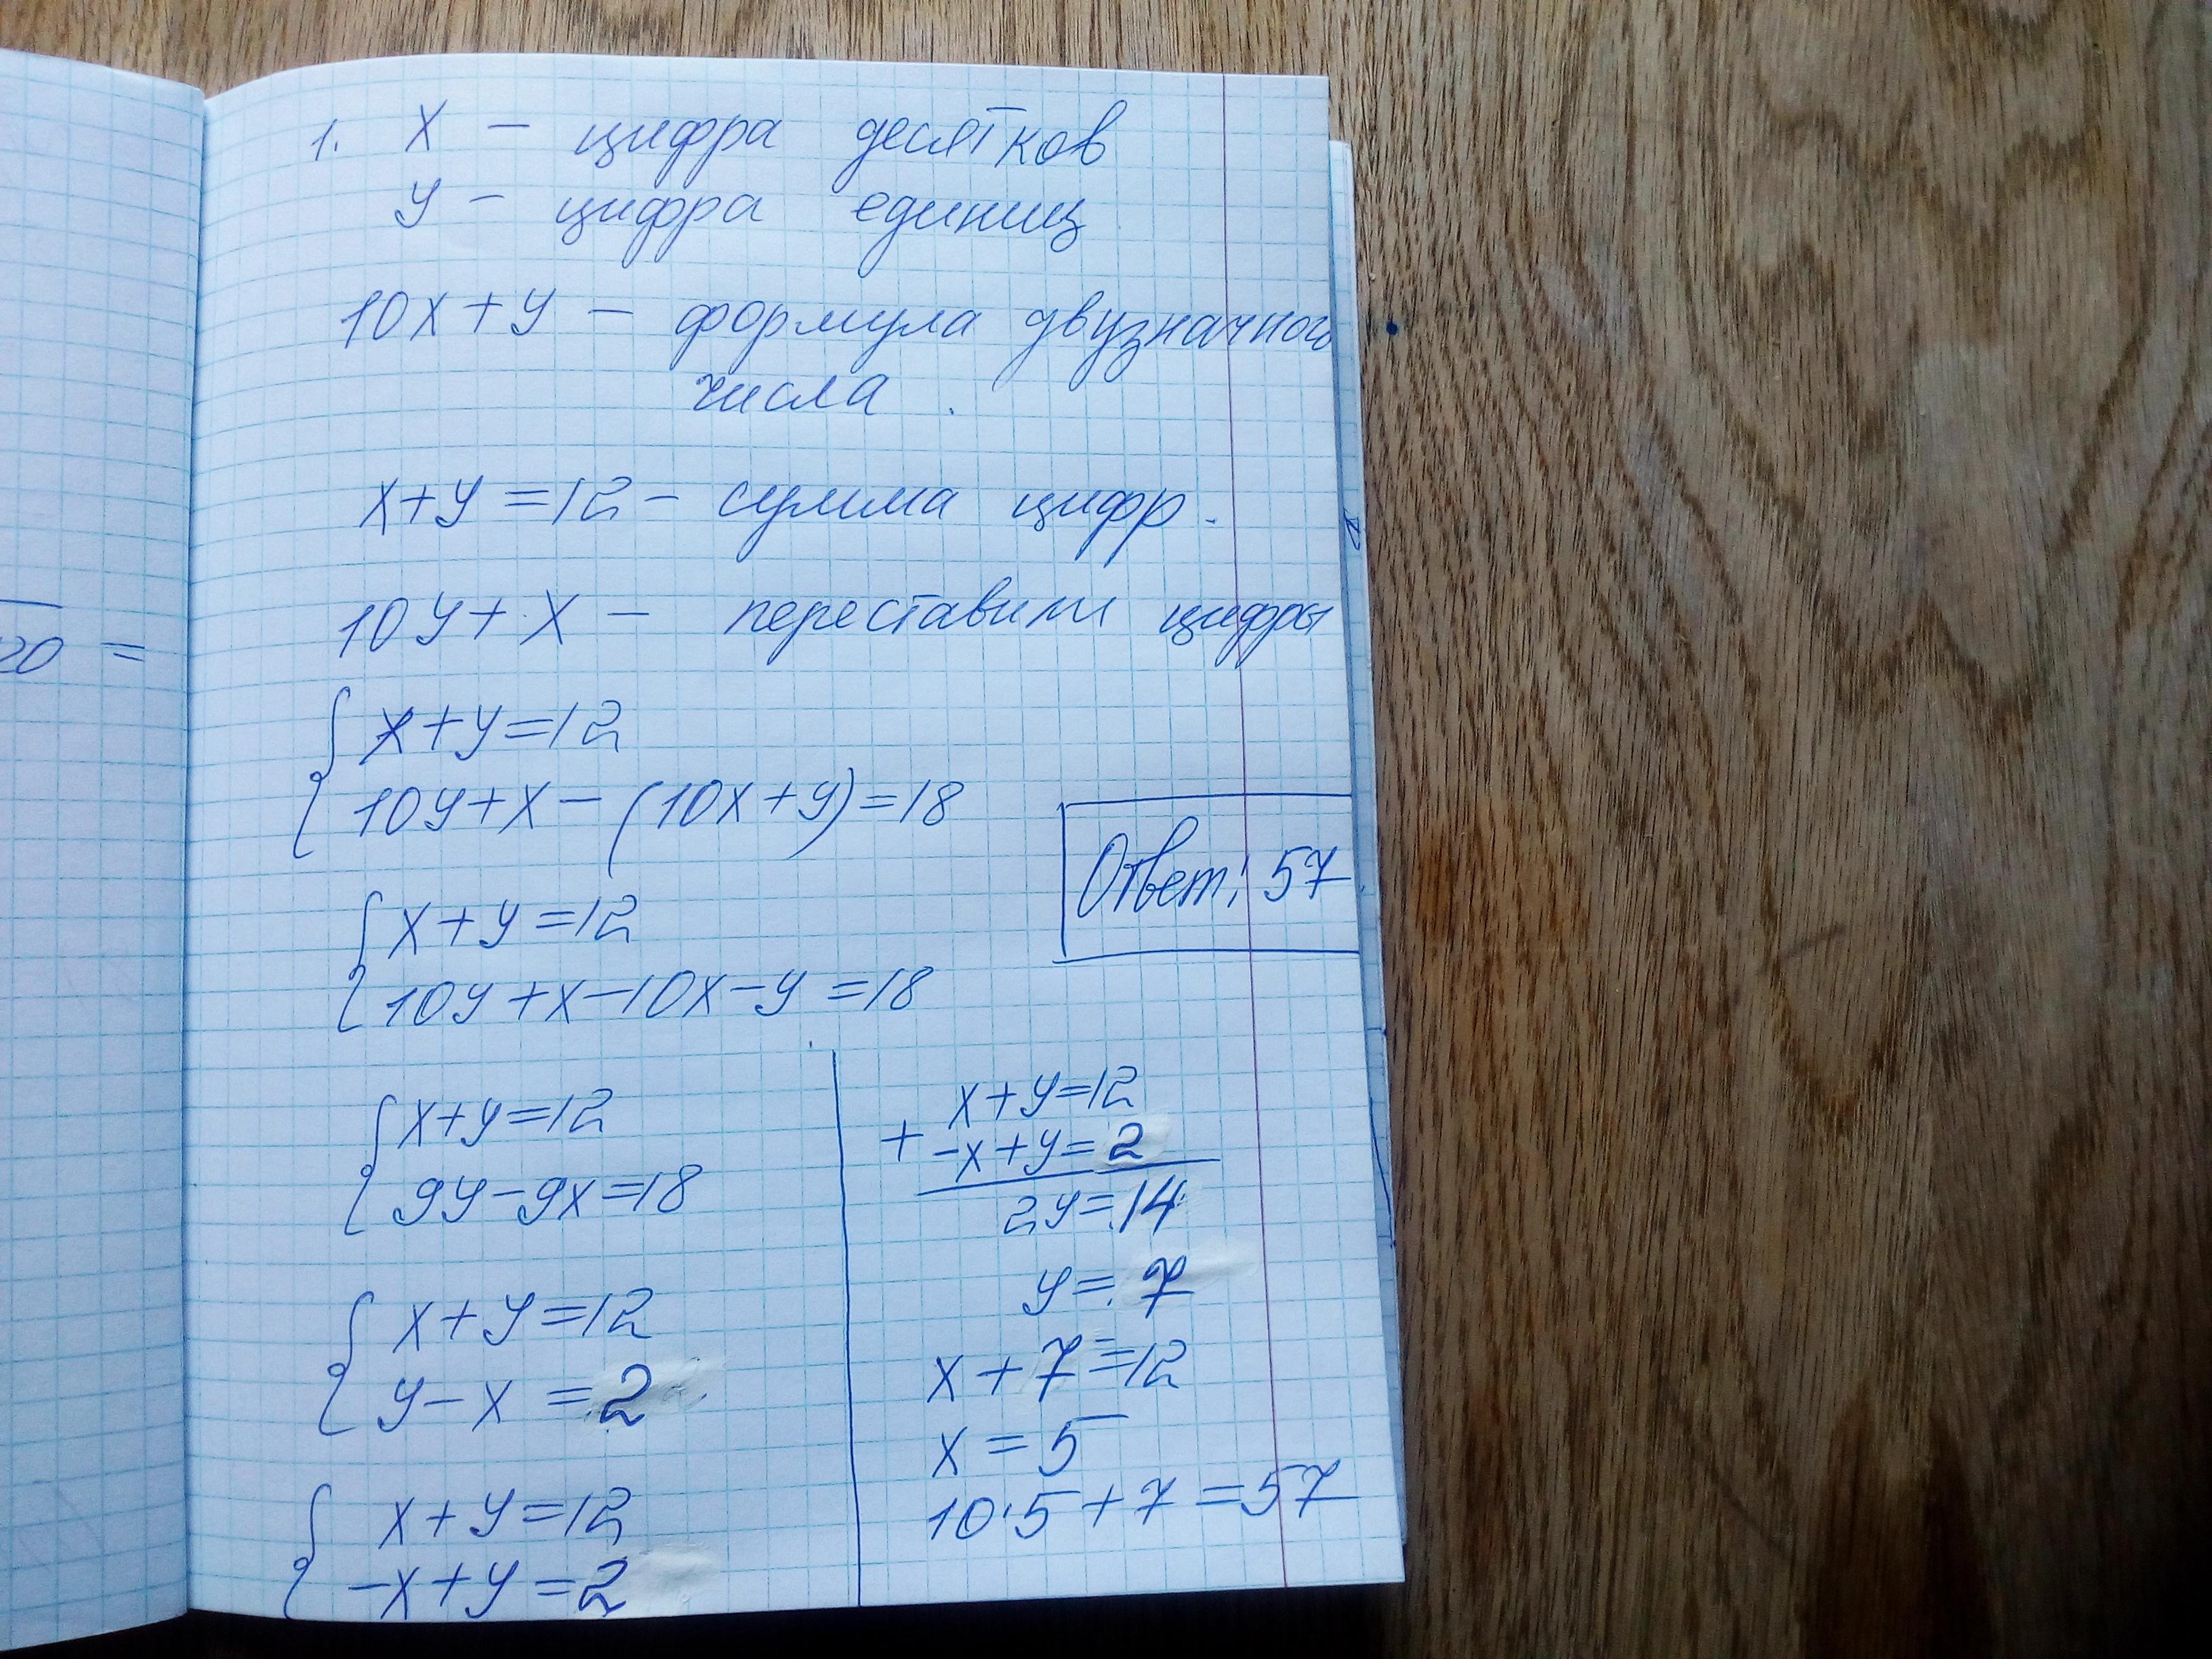 1. x – цифра десятков
y – цифра единиц
10x + y – формула двузначного
числа.
x + y = 12 – сумма цифр.
10y + x – переставили цифры
x + y = 12
10y + x – (10x + y) = 18
Ответ: 57
x + y = 12
10y + x – 10x – y = 18
x + y = 12
9y – 9x = 18
x + y = 12
y – x = 2
x + y = 12
–x + y = 2
x + y = 12
+ –x + y = 2
2y = 14
y = 7
x + 7 = 12
x = 5
10·5 + 7 = 57
20 =